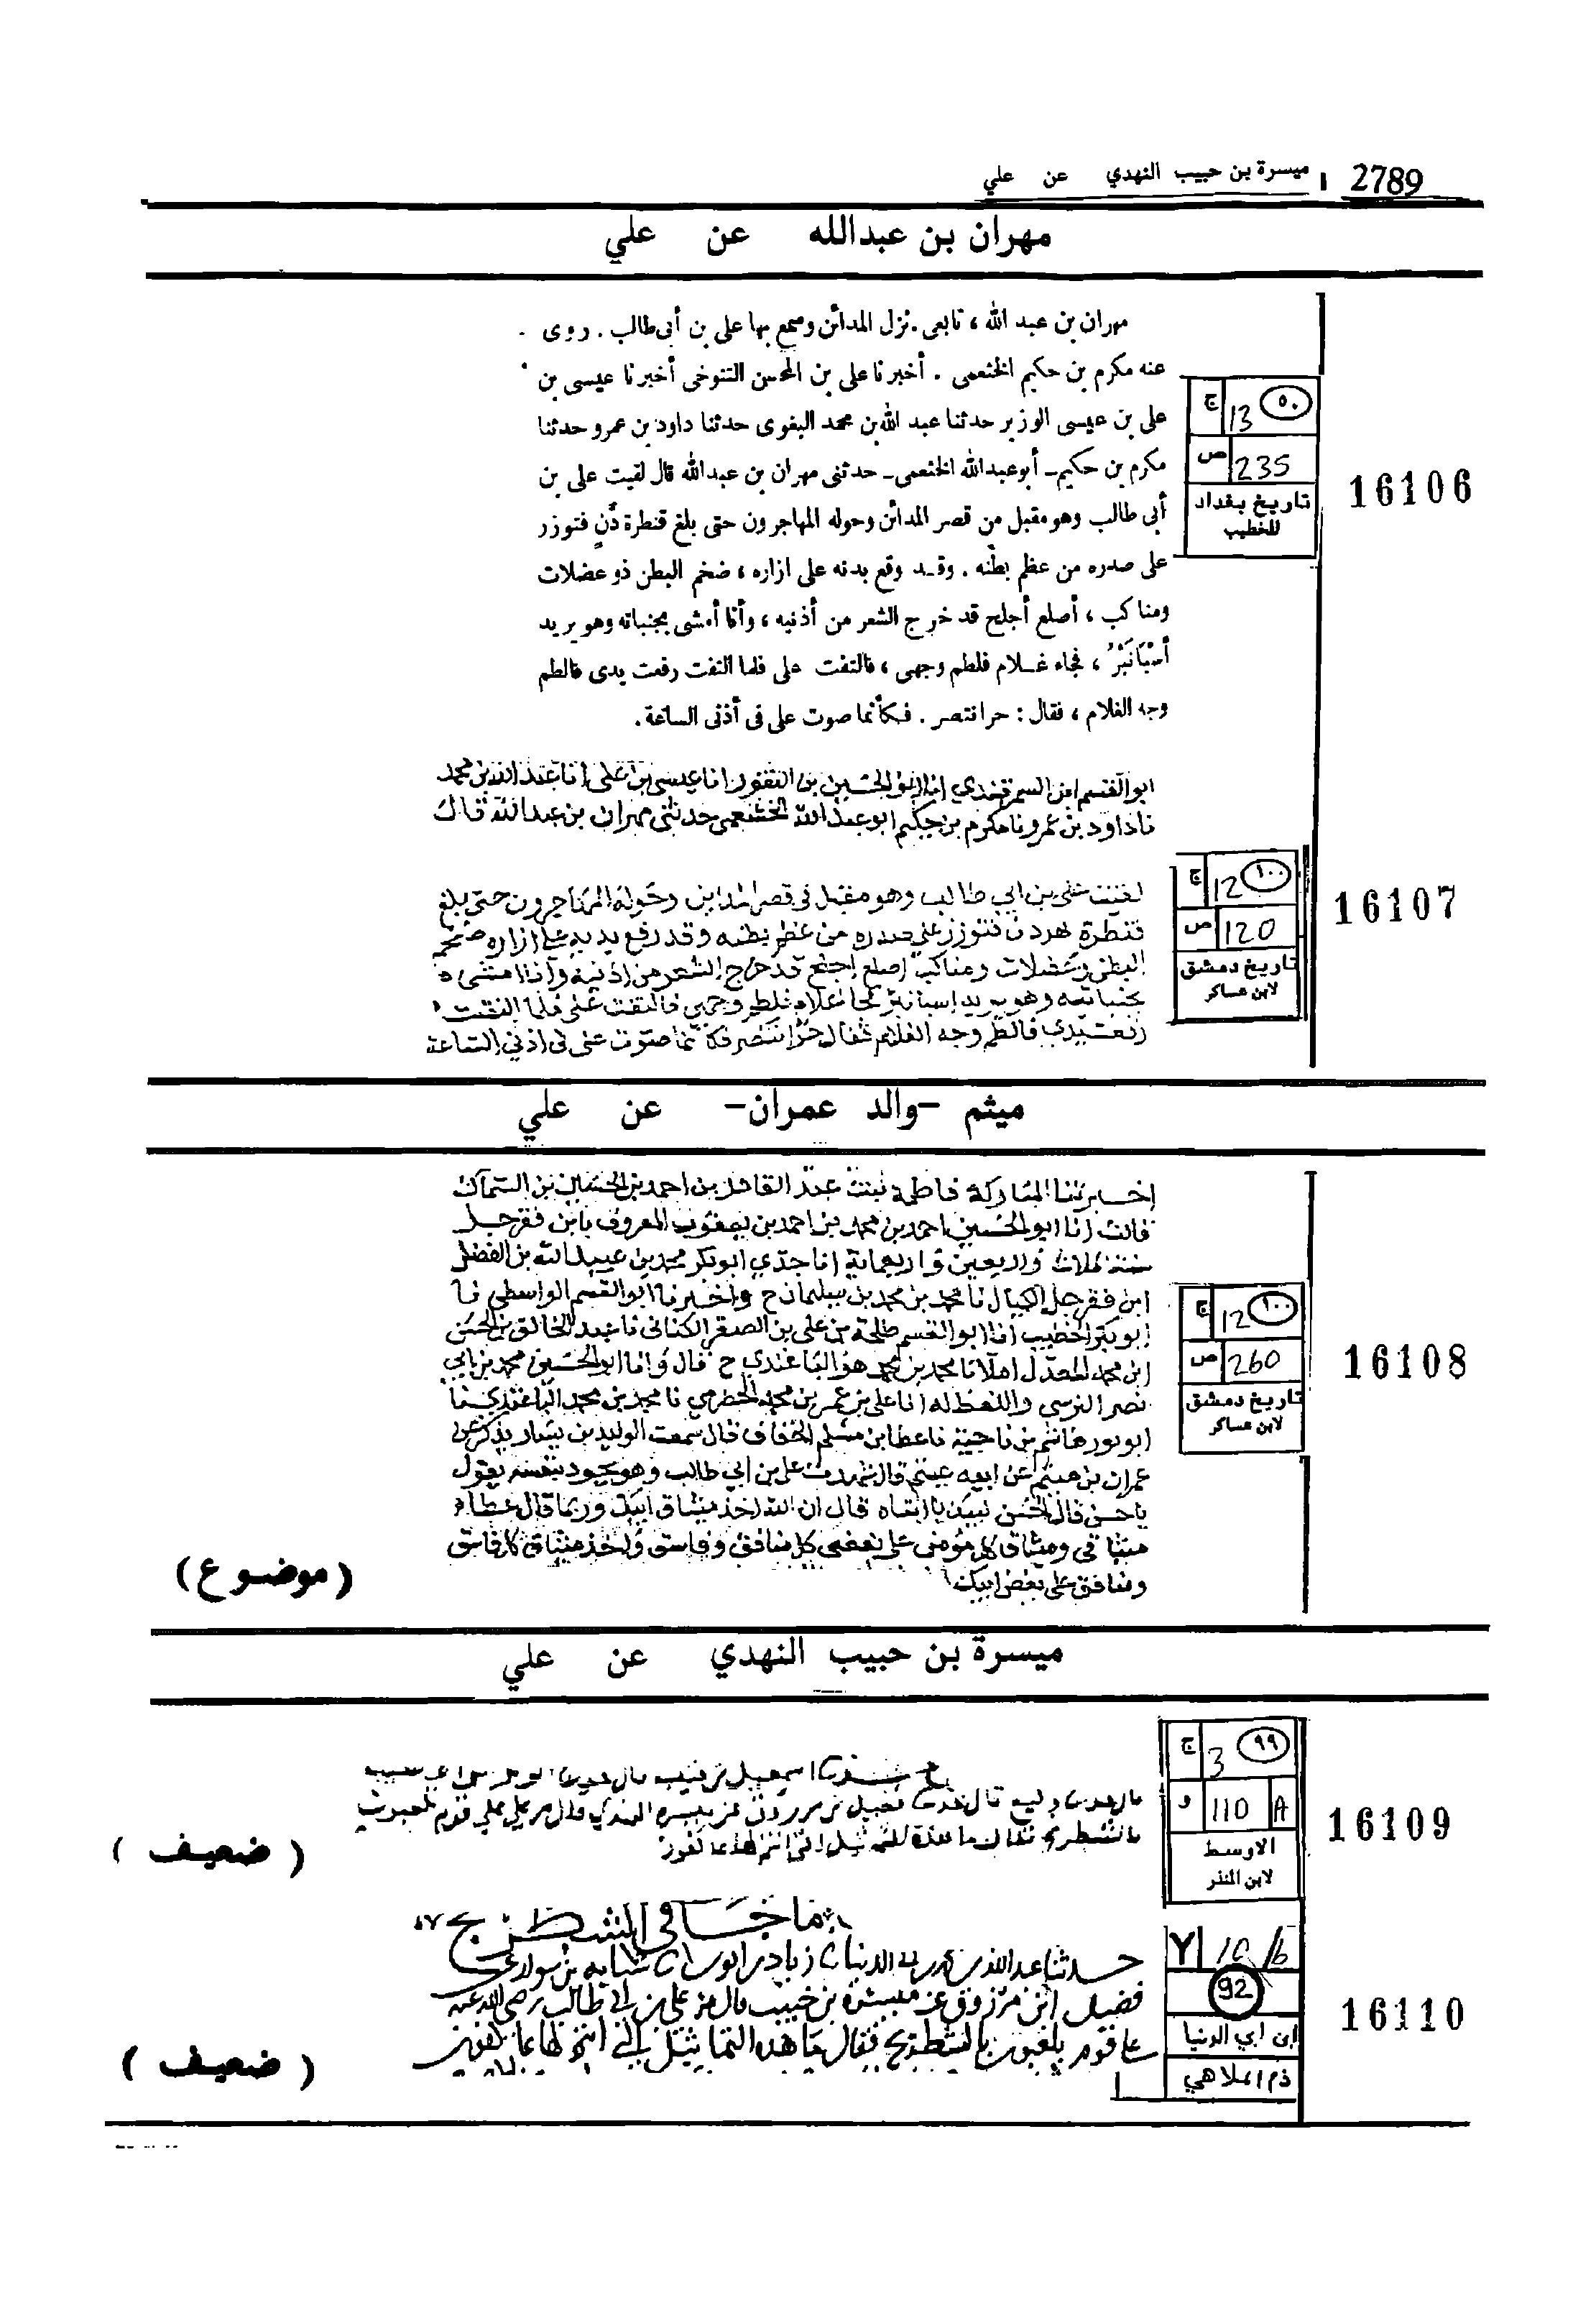 2789 ميسرة بن حبيب النهدي عن علي
مهران بن عبدالله عن علي
مهران بن عبد الله ، تابعى . نزل المدائن وسمع بها على بن أبى طالب . روى
عنه مكرم بن حكيم الخثعمى . أخبرنا على بن المحسن التنوخى أخبرنا عيسى بن
على بن عيسى الوزير حدثنا عبد الله بن محمد البغوى حدثنا داود بن عمرو حدثنا
مكرم بن حكيم ـ أبو عبدالله الخثعمى ـ حدثنى مهران بن عبدالله قال لقيت على بن
أبى طالب وهو مقبل من قصر المدائن وحوله المهاجرون حتى بلغ قنطرة دَنٍ فتوزر
على صدره من عظم بطنه . وقد وقع بدنه على ازاره ، ضخم البطن ذو عضلات
ومناكب ، أصلع أجلح قد خرج الشعر من أذنيه ، وأنا أمشى بجنباته وهو يريد
أسْبَانَبْرُ ، فجاء غلام فلطم وجهى ، فالتفت على فلما التفت رفعت يدى فالطم
وجه الغلام ، فقال : حر انتصر . فكأنما صوت على فى أذنى الساعة .
٥٠ 13 ج
235 ص
تاريخ بغداد
للخطيب
16106
ابو القسم ابن السمرقندي انا ابو الحسين بن النقور انا عيسى بن علي انا عبد الله بن محمد
نا داود بن عمرو نا مكرم بن حكيم ابو عبد الله الخثعمي حدثني مهران بن عبدالله قال
لقيت علي بن ابي طالب وهو مقبل في قصر المداين وحوله المهاجرون حتى بلغ
قنطرة فتوزر على صدره من عظم بطنه وقد رفع يديه على ازاره ضخم
البطن وعضلات ومناكب اصلع اجلح قد خرج الشعر من اذنيه وانا امشي
بجنباته وهو يريد اسبانبر فجا غلام فلطم وجهي فالتفت علي فلما التفت
رفعت يدي فالطم وجه الغلام فقال حر انتصر فكانما صوت علي في اذني الساعة
١٠٠ 12 ج
120 ص
تاريخ دمشق
لابن عساكر
16107
ميثم -والد عمران- عن علي
اخبرتنا المباركة فاطمة بنت عبد القادر بن احمد بن الحسين بن السماك
قالت انا ابو الحسين احمد بن محمد بن احمد بن يعقوب المعروف بابن قفرجل
سنة ثلاث واربعين واربعماية انا جدي ابو بكر محمد بن عبيد الله بن الفضل
ابن قفرجل الكيال نا محمد بن محمد بن سليمان ح واخبرنا ابو القسم الواسطي نا
ابو بكر الخطيب انا ابو القسم طلحة بن علي بن الصقر الكتاني نا عبد الخالق بن الحسن
ابن محمد المعدل املا نا محمد بن محمد هو الباغندي ح قال وانا ابو الحسين محمد بن ابي
نصر النرسي واللفظ له انا علي بن عمر بن محمد الحضرمي نا محمد بن محمد الباغندي نا
ابو ثور هاشم بن ناجية نا عطا بن مسلم الخفاف قال سمعت الوليد بن يسار يذكر عن
عمران بن ميثم عن ابيه ميثم قال شهدت علي بن ابي طالب وهو يجود بنفسه يقول
يا حسن قال الحسن لبيك يا ابتاه قال ان الله اخذ ميثاق ابيك وربما قال عطاء
ميثاقي وميثاق كل مؤمن على بغض كل منافق وفاسق واخذ ميثاق كل فاسق
ومنافق على بغض ابيك
(موضوع)
١٠٠ 12 ج
260 ص
تاريخ دمشق
لابن عساكر
16108
ميسرة بن حبيب النهدي عن علي
اسمعيل بن
وكيع قال فضيل بن مرزوق عن ميسرة النهدي قال مر علي على قوم يلعبون
بالشطرنج فقال ما هذه التماثيل التي انتم لها عاكفون
(ضعيف)
٩٩ 3 ج
A 110 و
الاوسط
لابن المنذر
16109
ما جا في الشطرنج
حدثنا زياد بن ايوب شبابه بن سوار
فضيل ابن مرزوق عن ميسرة بن حبيب قال مر علي بن ابي طالب رضي الله عنه
على قوم يلعبون بالشطرنج فقال ما هذه التماثيل التي انتم لها عاكفون
(ضعيف)
10/b
92
ابن ابي الدنيا
ذم الملاهي
16110